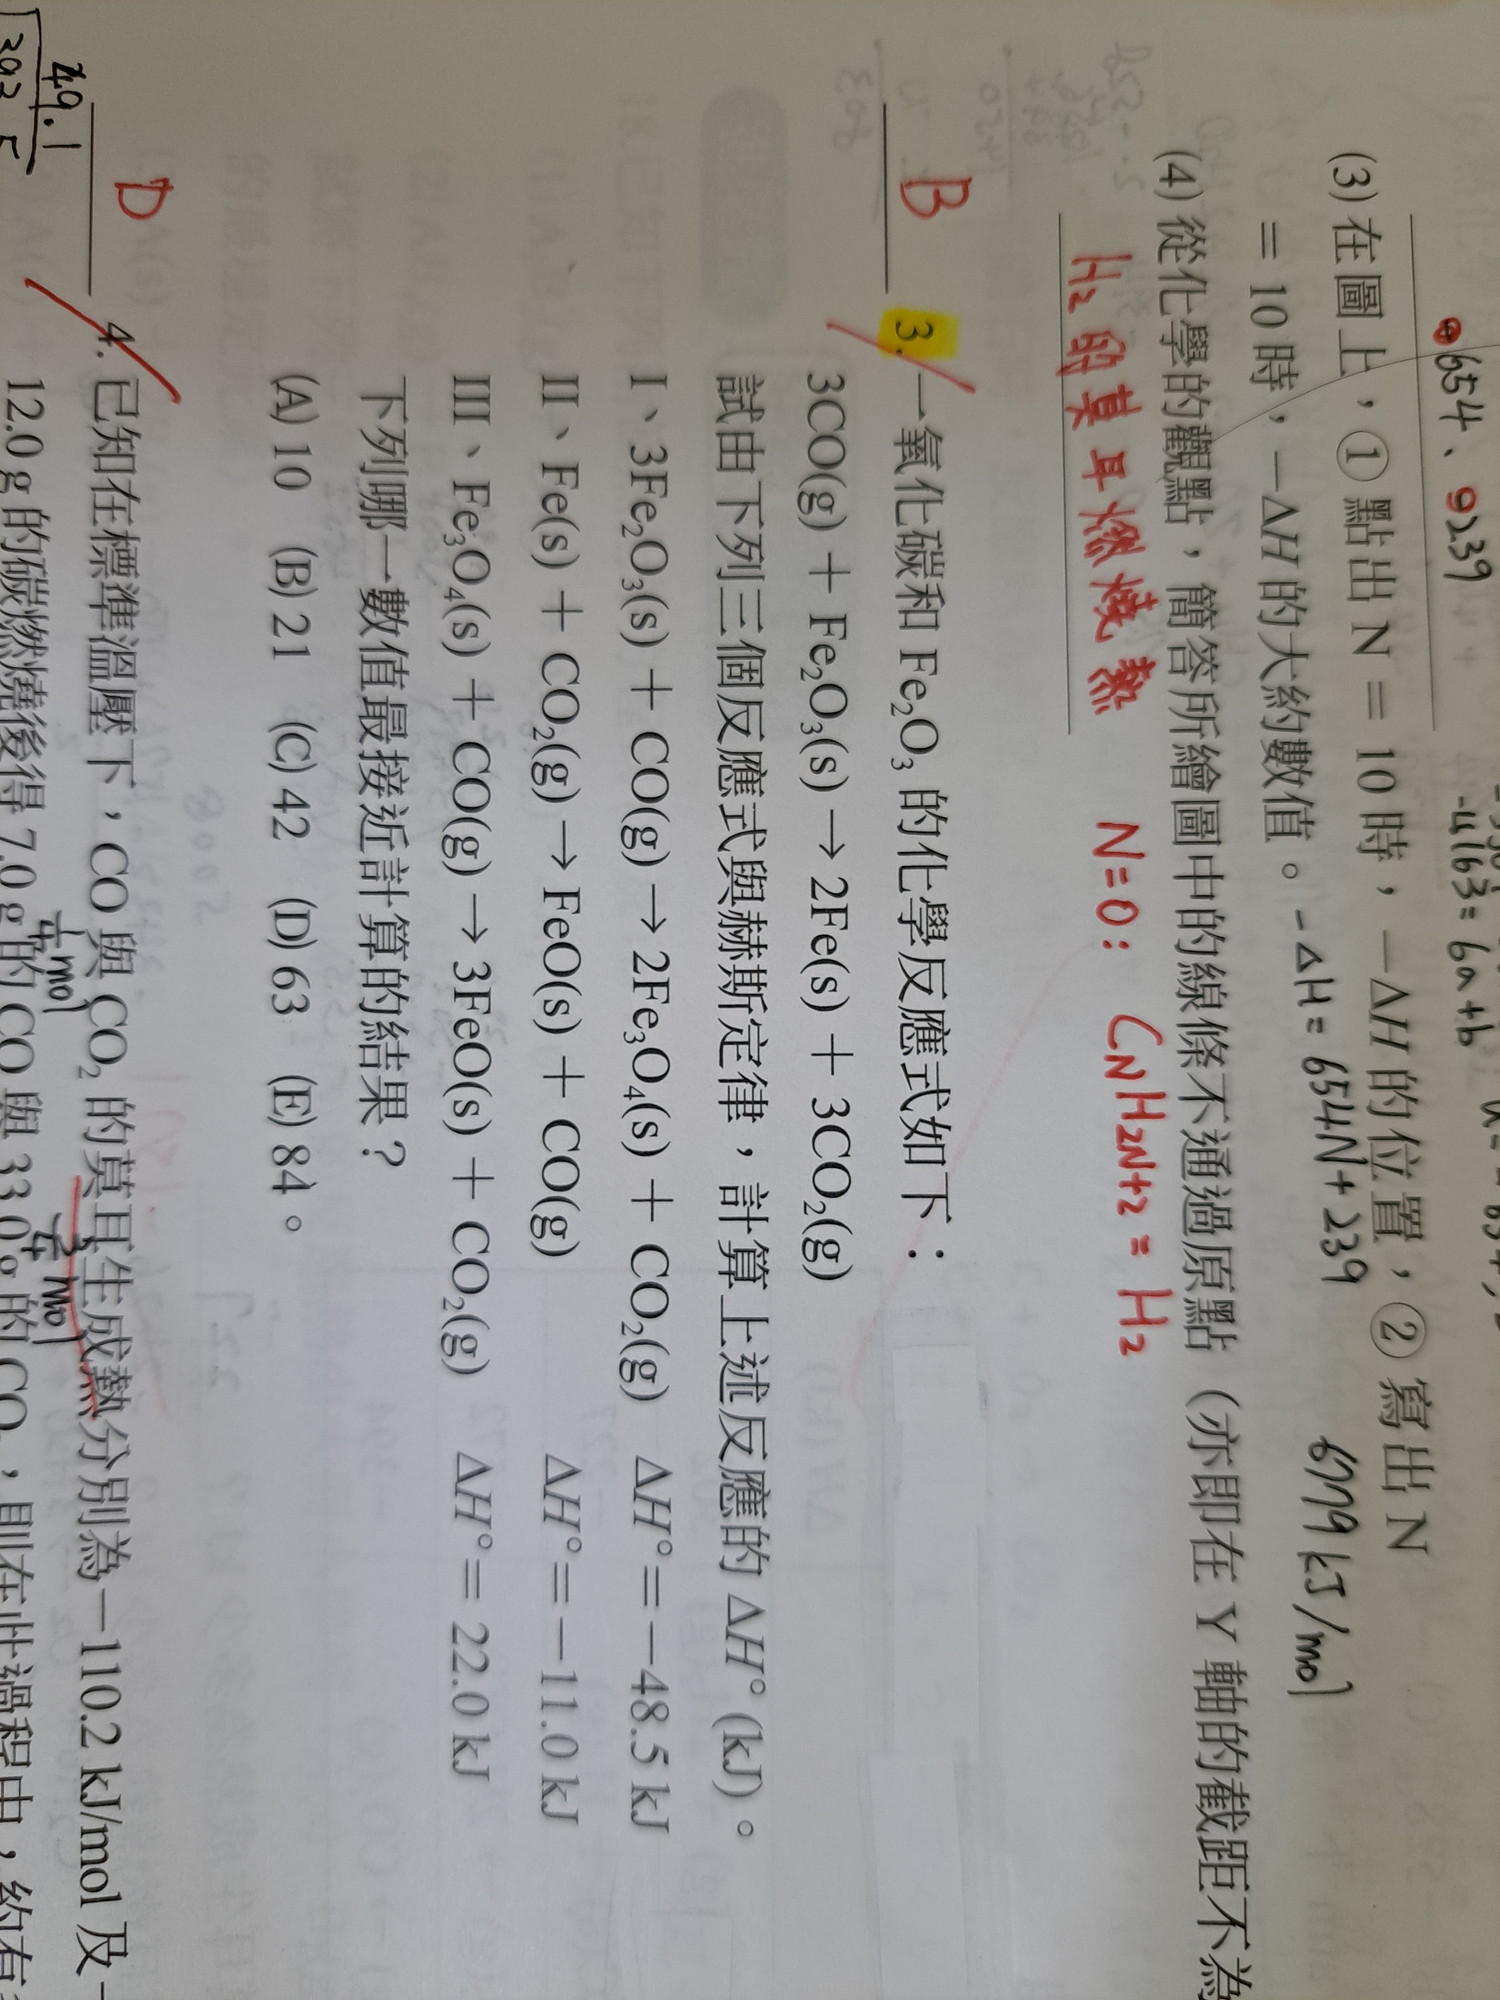 ⊕654、⊖239
-4163=6a+b
(3) 在圖上，①點出 N = 10 時，−ΔH 的位置，②寫出 N
= 10 時，−ΔH 的大約數值。 -ΔH= 654N+239 6779 kJ/mol
(4) 從化學的觀點，簡答所繪圖中的線條不通過原點（亦即在 Y 軸的截距不為
H₂ 的莫耳燃燒熱 N=0: CNH2N+2 = H₂
B 3. 一氧化碳和 Fe₂O₃ 的化學反應式如下：
3CO(g) + Fe₂O₃(s) → 2Fe(s) + 3CO₂(g)
試由下列三個反應式與赫斯定律，計算上述反應的 ΔH° (kJ)。
I、3Fe₂O₃(s) + CO(g) → 2Fe₃O₄(s) + CO₂(g) ΔH° = −48.5 kJ
II、Fe(s) + CO₂(g) → FeO(s) + CO(g) ΔH° = −11.0 kJ
III、Fe₃O₄(s) + CO(g) → 3FeO(s) + CO₂(g) ΔH° = 22.0 kJ
下列哪一數值最接近計算的結果？
(A) 10 (B) 21 (C) 42 (D) 63 (E) 84。
D 4. 已知在標準溫壓下，CO 與 CO₂ 的莫耳生成熱分別為−110.2 kJ/mol 及
1/4 mol 3/4 mol
49.1
12.0 g 的碳燃燒後得 7.0 g 的 CO 與 33.0 g 的 CO₂，則在此過程中，約有